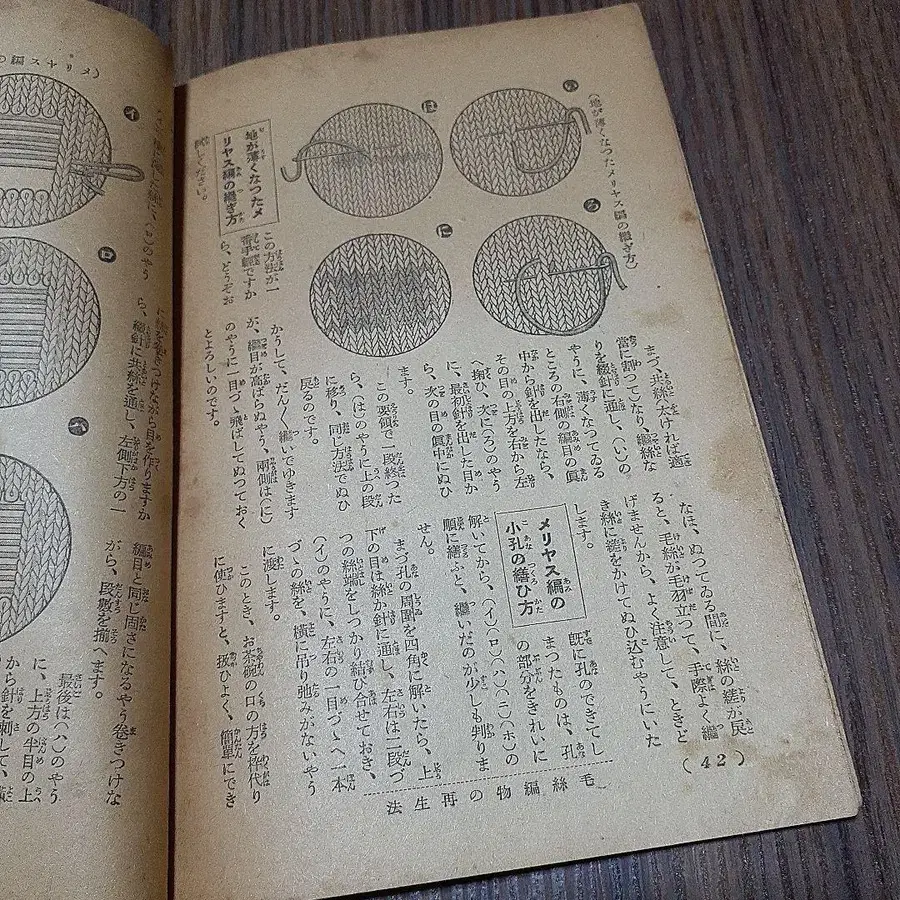 (地が薄くなつたメリヤス編の繼ぎ方)
い
ろ
は
に
地が薄くなつたメ
リヤス編の繼ぎ方
この方法が一
番手輕ですか
ら、どうぞお
試しください。
まづ、共絲太ければ適
當に割つて)なり、繼絲な
りを綴針に通し、(い)の
やうに、薄くなつてゐる
ところの右側の編目の眞
中から針を出したなら、
その目の上方を右から左
へ掬ひ、次に(ろ)のやう
に、最初針を出した目か
ら、次の目の眞中にぬひ
ます。
この要領で一段終つた
ら、(は)のやうに上の段
に移り、同じ方法でぬひ
戻るのです。
かうして、だん〳〵繼いでゆきます
が、編目が高ばらぬやう、兩側は(に)
のやうに一目づゝ飛ばしてぬつておく
とよろしいのです。
なほ、ぬつてゐる間に、絲の縒が戻
ると、毛絲が毛羽立つて、手際よく繼
げませんから、よく注意して、ときど
き絲に縒をかけてぬひ込むやうにいた
します。
メリヤス編の
小孔の繕ひ方
既に孔のできてし
まつたものは、孔
の部分をきれいに
解いてから、(イ)(ロ)(ハ)(ニ)(ホ)の
順に繕ふと、繼いだのが少しも判りま
せん。
まづ孔の周圍を四角に解いたら、上
下の目は絲か針に通し、左右は二段づ
つの絲端をしつかり結び合せておき、
(イ)のやうに、左右の一目づゝへ一本
づゝの絲を、横に吊り弛みかないやう
に渡します。
このとき、お茶碗の口の方を枠代り
に使ひますと、扱ひよく、簡單にでき
毛絲編物の再生法
(42)
イ
ロ
ハ
に絲を巻きつけながら目を作りますか
ら、綴針に共絲を通し、左側下方の一
編目と同じ固さになるやう巻きつけな
がら、段數を揃へます。
最後は(ハ)のやう
に、上方の半目の上
から針を刺して、